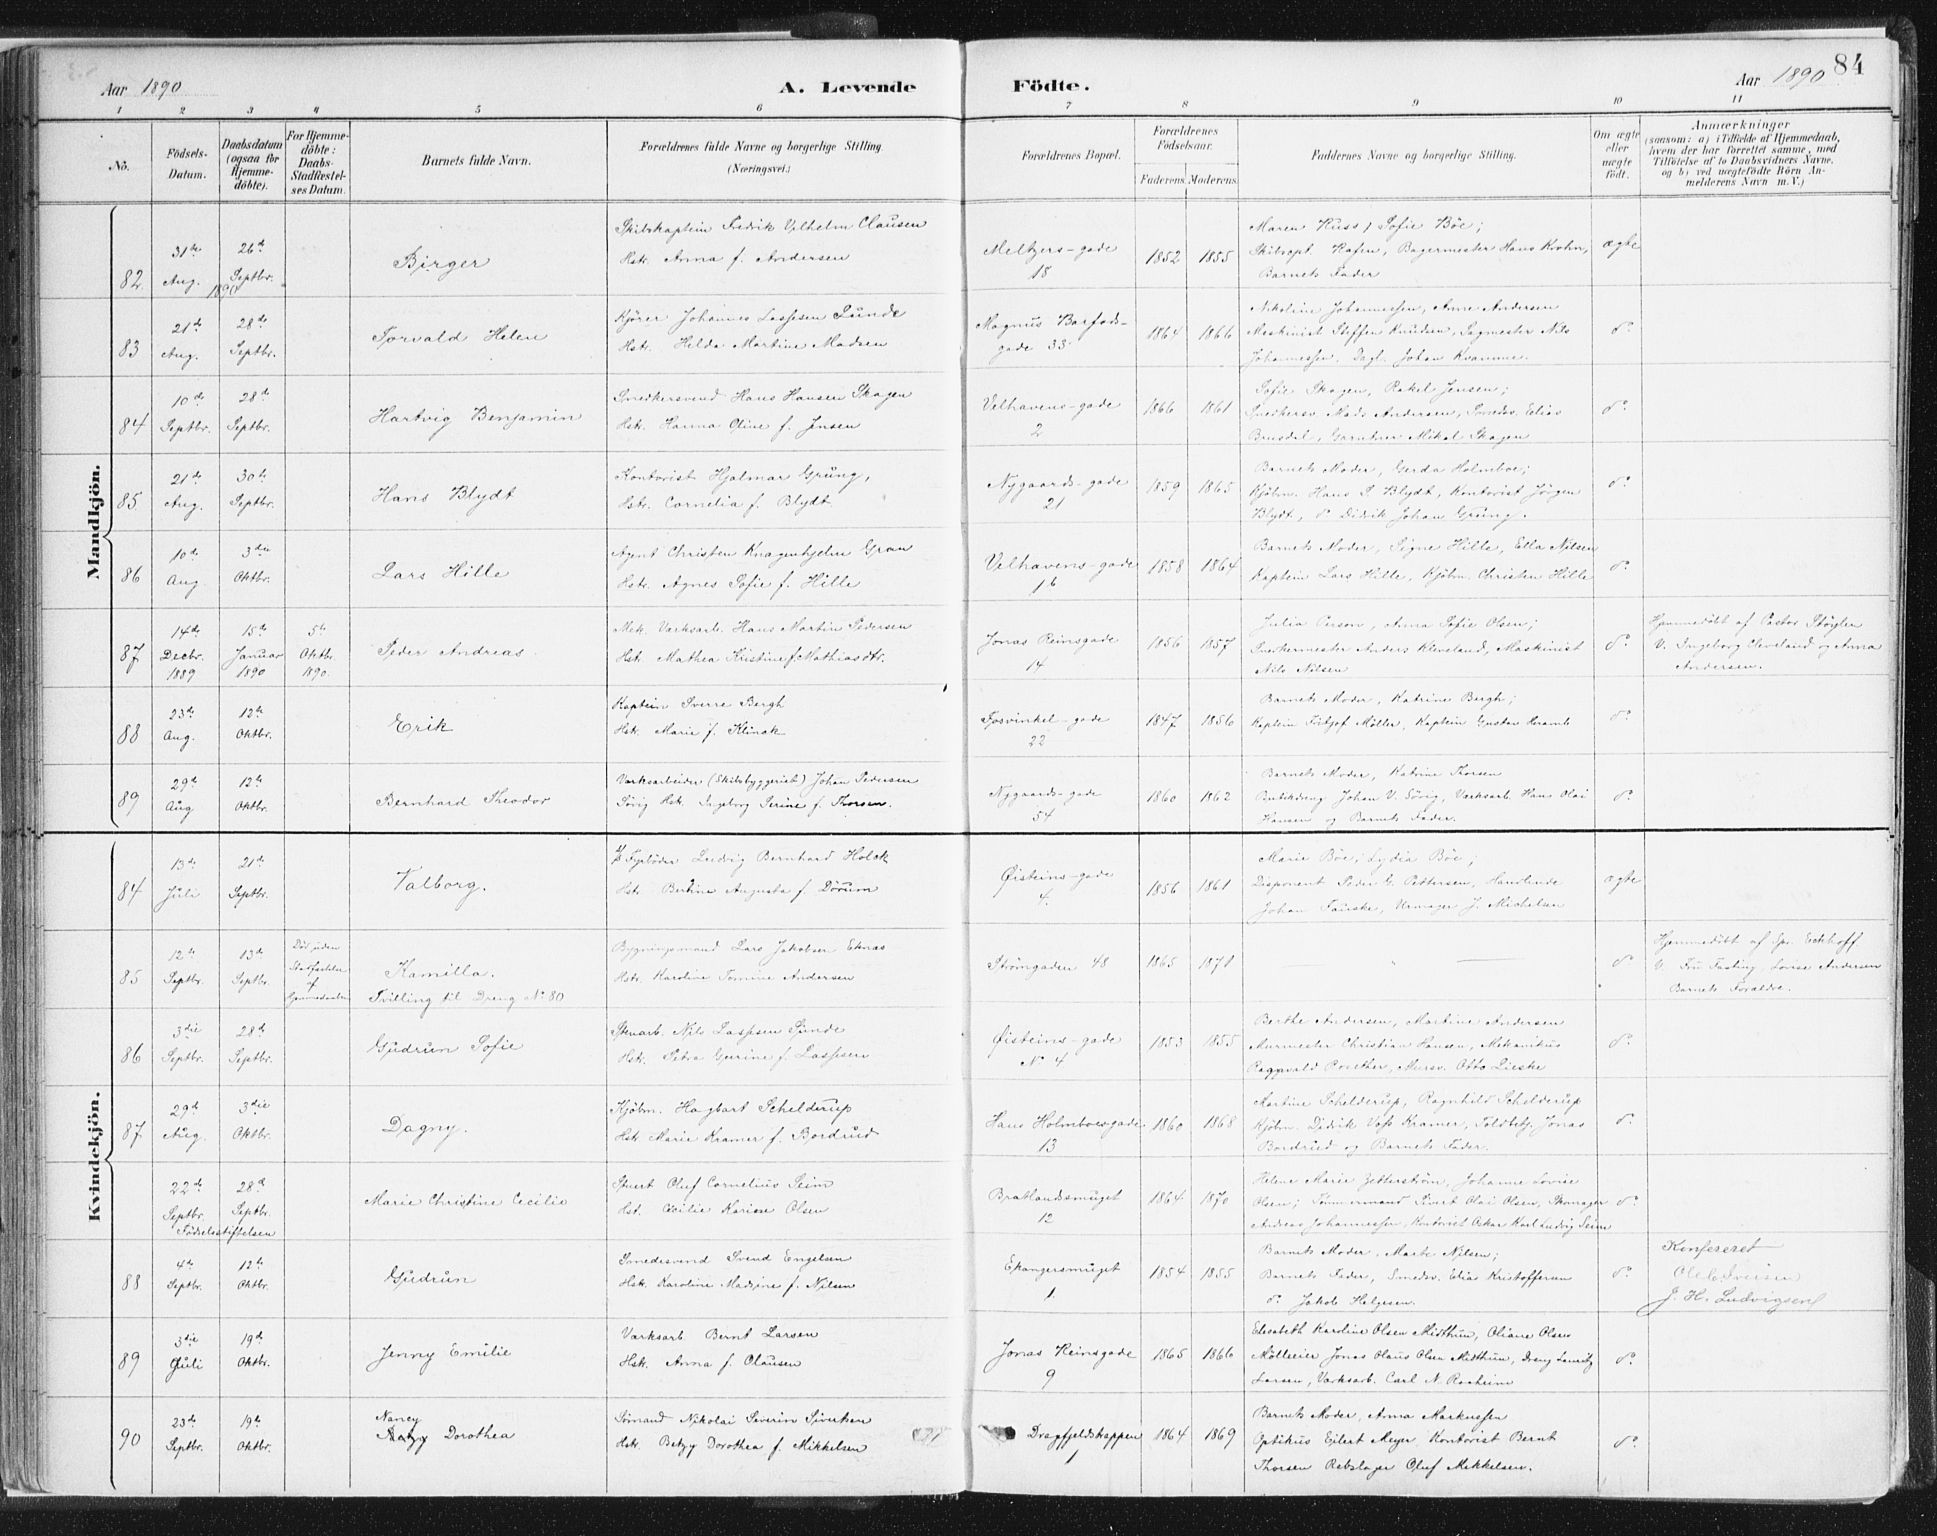 Aar 1890
A. Levende
Födte.
Aar 1890
84
1 2 3 4 5 6 7 8 9 10 11
No.
Födsels-
Datum.
Daabsdatum
(ogsaa for
Hjemme-
döbte).
For Hjemme-
döbte:
Daabs-
Stadfæstel-
ses Datum.
Barnets fulde Navn.
Forældrenes fulde Navne og borgerlige Stilling.
(Næringsvei.)
Forældrenes Bopæl.
Forældrenes
Födselsaar.
Faderens. Moderens.
Faddernes Navne og borgerlige Stilling.
Om ægte
eller
uægte
födt.
Anmærkninger
(saasom: a) i Tilfælde af Hjemmedaab,
hvem der har forrettet samme, med
Tilföielse af to Daabsvidners Navne,
og b) ved uægtefödte Börn An-
melderens Navn m. V.)
Mandkjön.
82 31te Aug. 1890 26de Septbr. Birger
Skibskaptein Fredrik Vilhelm Clausen
Hstr. Anna f. Andersen
Meltzers-gade
18
1852 1855
Maren Huss, Sofie Böe;
Skibscpt. Hafen, Bagermester Hans Krohn,
Barnets Fader
ægte
83 21de Aug. 28de Septbr. Torvald Helen
Kjörer Johannes Lassesen Sunde
Hst. Helda Martine Madsen
Magnus Barfods-
gade 33
1864 1866
Nikoline Johannessen, Anne Andersen
Maskinist Steffen Knudsen, Sagmester Nils
Johannessen, Dagl. Johan Kvamme.
do
84 10de Septbr. 28de Septbr. Hartvig Benjamin
Snedkersvend Hans Hansen Skagen
Hstr. Hanna Oline f. Jensen
Velhavens-gade
2
1866 1861
Sofie Skagen, Rakel Jensen;
Snedkersv. Mads Andersen, Smeds. Elias
Brusdal, Gartner Mikal Skagen
do
85 21de Aug. 30te Septbr. Hans Blydt
Kontorist Hjalmar Grung,
Hstr. Cornelia f. Blydt
Nygaards-gade
21
1859 1865
Barnets Moder, Gerda Holmboe;
Kjöbm. Hans S. Blydt, Kontorist Jörgen
Blydt, do Didrik Johan Grung.
do
86 10de Aug. 3die Oktbr. Lars Hille
Agent Christen Knagenhjelm Gran
Hstr. Agnes Sofie f. Hille
Velhavens-gade
16
1858 1864
Barnets Moder, Signe Hille, Ella Nilsen
Kaptein Lars Hille, Kjöbm. Christen Hille
do
87 14de Decbr. 1889 15de Januar 1890 5te Oktbr. 1890. Peder Andreas
Mek. Værksarb. Hans Martin Pedersen
Hst. Mathea Kristine f. Mathiasdtr.
Jonas Reinsgade
14
1856 1857
Julia Person, Anna Sofie Olsen;
Snedkermester Anders Kleveland, Maskinist
Nils Nilsen
do
Hjemmedöbt af Pastor Stöylen
V. Ingeborg Cleveland og Anna
Andersen.
88 23de Aug. 12te Oktbr. Erik
Kaptein Sverre Bergh
Hst. Marie f. Klinck
Fosvinkel-gade
22
1847 1856
Barnets Moder, Katrine Bergh;
Kaptein Fritjof Möller, Kaptein Gustav Heramb
do
89 29de Aug 12te Oktbr. Bernhard Theodor
Værksarbeider (Skibsbyggeriet) Johan Pedersen
Sörig Hstr. Ingeborg Serine f. Thorsen.
Nygaards-gade
54
1860 1862
Barnets Moder, Katrine Thorsen
Butikdreng Johan V. Sörig, Værksarb. Hans Olai
Hansen og Barnets Fader.
do
Kvindekjön.
84 13de Juli 21de Septbr. Valborg.
Fyrböder Ludvig Bernhard Holck
Hstr. Bertine Augusta f. Dörum
Øisteins-gade
4.
1856 1861
Marie Böe; Lydia Böe;
Disponent Peder G. Pettersen, Handlende
Johan Fauske, Urmager J. Michelsen
ægte
85 12te Septbr. 13de Septbr. Död uden Stadfæstelse af Hjemmedaaben Kamilla.
Tvilling til Dreng No. 80
Bygningsmand Lars Jakobsen Eknæs
Hstr. Karoline Tomine Andersen
Strömgaden 48
1865 1871
— " —
do
Hjemmedöbt af Spr. Eckhoff
V. Fru Fasting, Lovise Andersen
Barnets Forældre.
86 3die Septbr. 28de Septbr. Gudrun Sofie
Stenarb. Nils Lassesen Sunde
Hstr. Petra Gurine f. Lassesen
Øisteins-gade
No 4
1853 1855
Berthe Andersen, Martine Andersen
Murmester Christian Hansen, Mekanikus
Ragnvald Roscher, Mursv. Otto Lieske
do
87 29de Aug. 3die Oktbr. Dagny.
Kjöbm. Hagbart Schelderup
Hstr. Marie Kramer f. Bordrud
Hans Holmboesgade
13
1860 1868
Martine Schelderup, Ragnhild Schelderup
Kjöbm. Didrik Voss Kramer, Toldbetj. Jonas
Bordrud og Barnets Fader.
do
22de Septbr. 28de Septbr. Marie Christine Cecilie
Födselsstiftelsen
Stuert Oluf Cornelius Seim
Hst. Cecilie Karine Olsen
Bratlandsmuget
12
1864 1870
Helene Marie Zetterström, Johanne Lovise
Olsen; Tömmermand Sivert Olai Olsen, Skomager
Andreas Johannessen, Kontorist Oskar Karl Ludvig Seim
do
88 4de Septbr. 12te Oktbr. Gudrun
Smedesvend Svend Engelsen
Hst. Karoline Madsine f. Nilsen
Ekangersmuget
1.
1854 1855
Barnets Moder, Marte Nilsen;
Barnets Fader, Smedsv. Elias Kristoffersen
do Jakob Helgesen.
do
Konfereret
Ole C. Iversen
J. H. Ludvigsen
89 3die Juli 19de Oktbr. Jenny Emilie
Værksarb Bernt Larsen
Hsk. Anna f. Clausen
Jonas Reinsgade
9
1865 1866
Elisabeth Karoline Olsen Midthun, Oliane Olsen
Mölleeier Jonas Olaus Olsen Midthun, Dreng Lauritz
Larsen, Værksarb. Carl N. Roeheim
do
90 23de Septbr. 19de Oktbr. Nancy Dorothea
Sömand Nikolai Severin Sivertsen
Hstr. Betzy Dorothea f. Mikkelsen
Dragefjeldstrappen
1
1864 1869
Barnets Moder, Anna Markussen
Optikus Eilert Meyer, Kontorist Bernt
Thorsen Rebslager Oluf Mikkelsen.
do